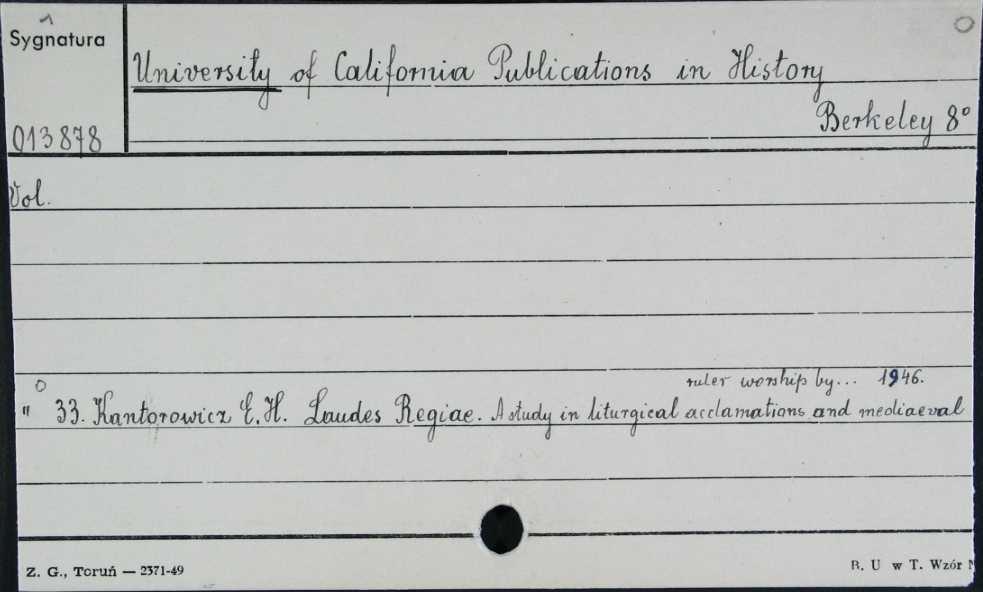 Sygnatura
University of California Publications in History
Berkeley 8°
013878
Vol.
ruler worship by... 1946.
" 33. Kantorowicz E. H. Laudes Regiae. A study in liturgical acclamations and mediaeval
Z. G., Toruń — 2371-49
B. U w T. Wzór N